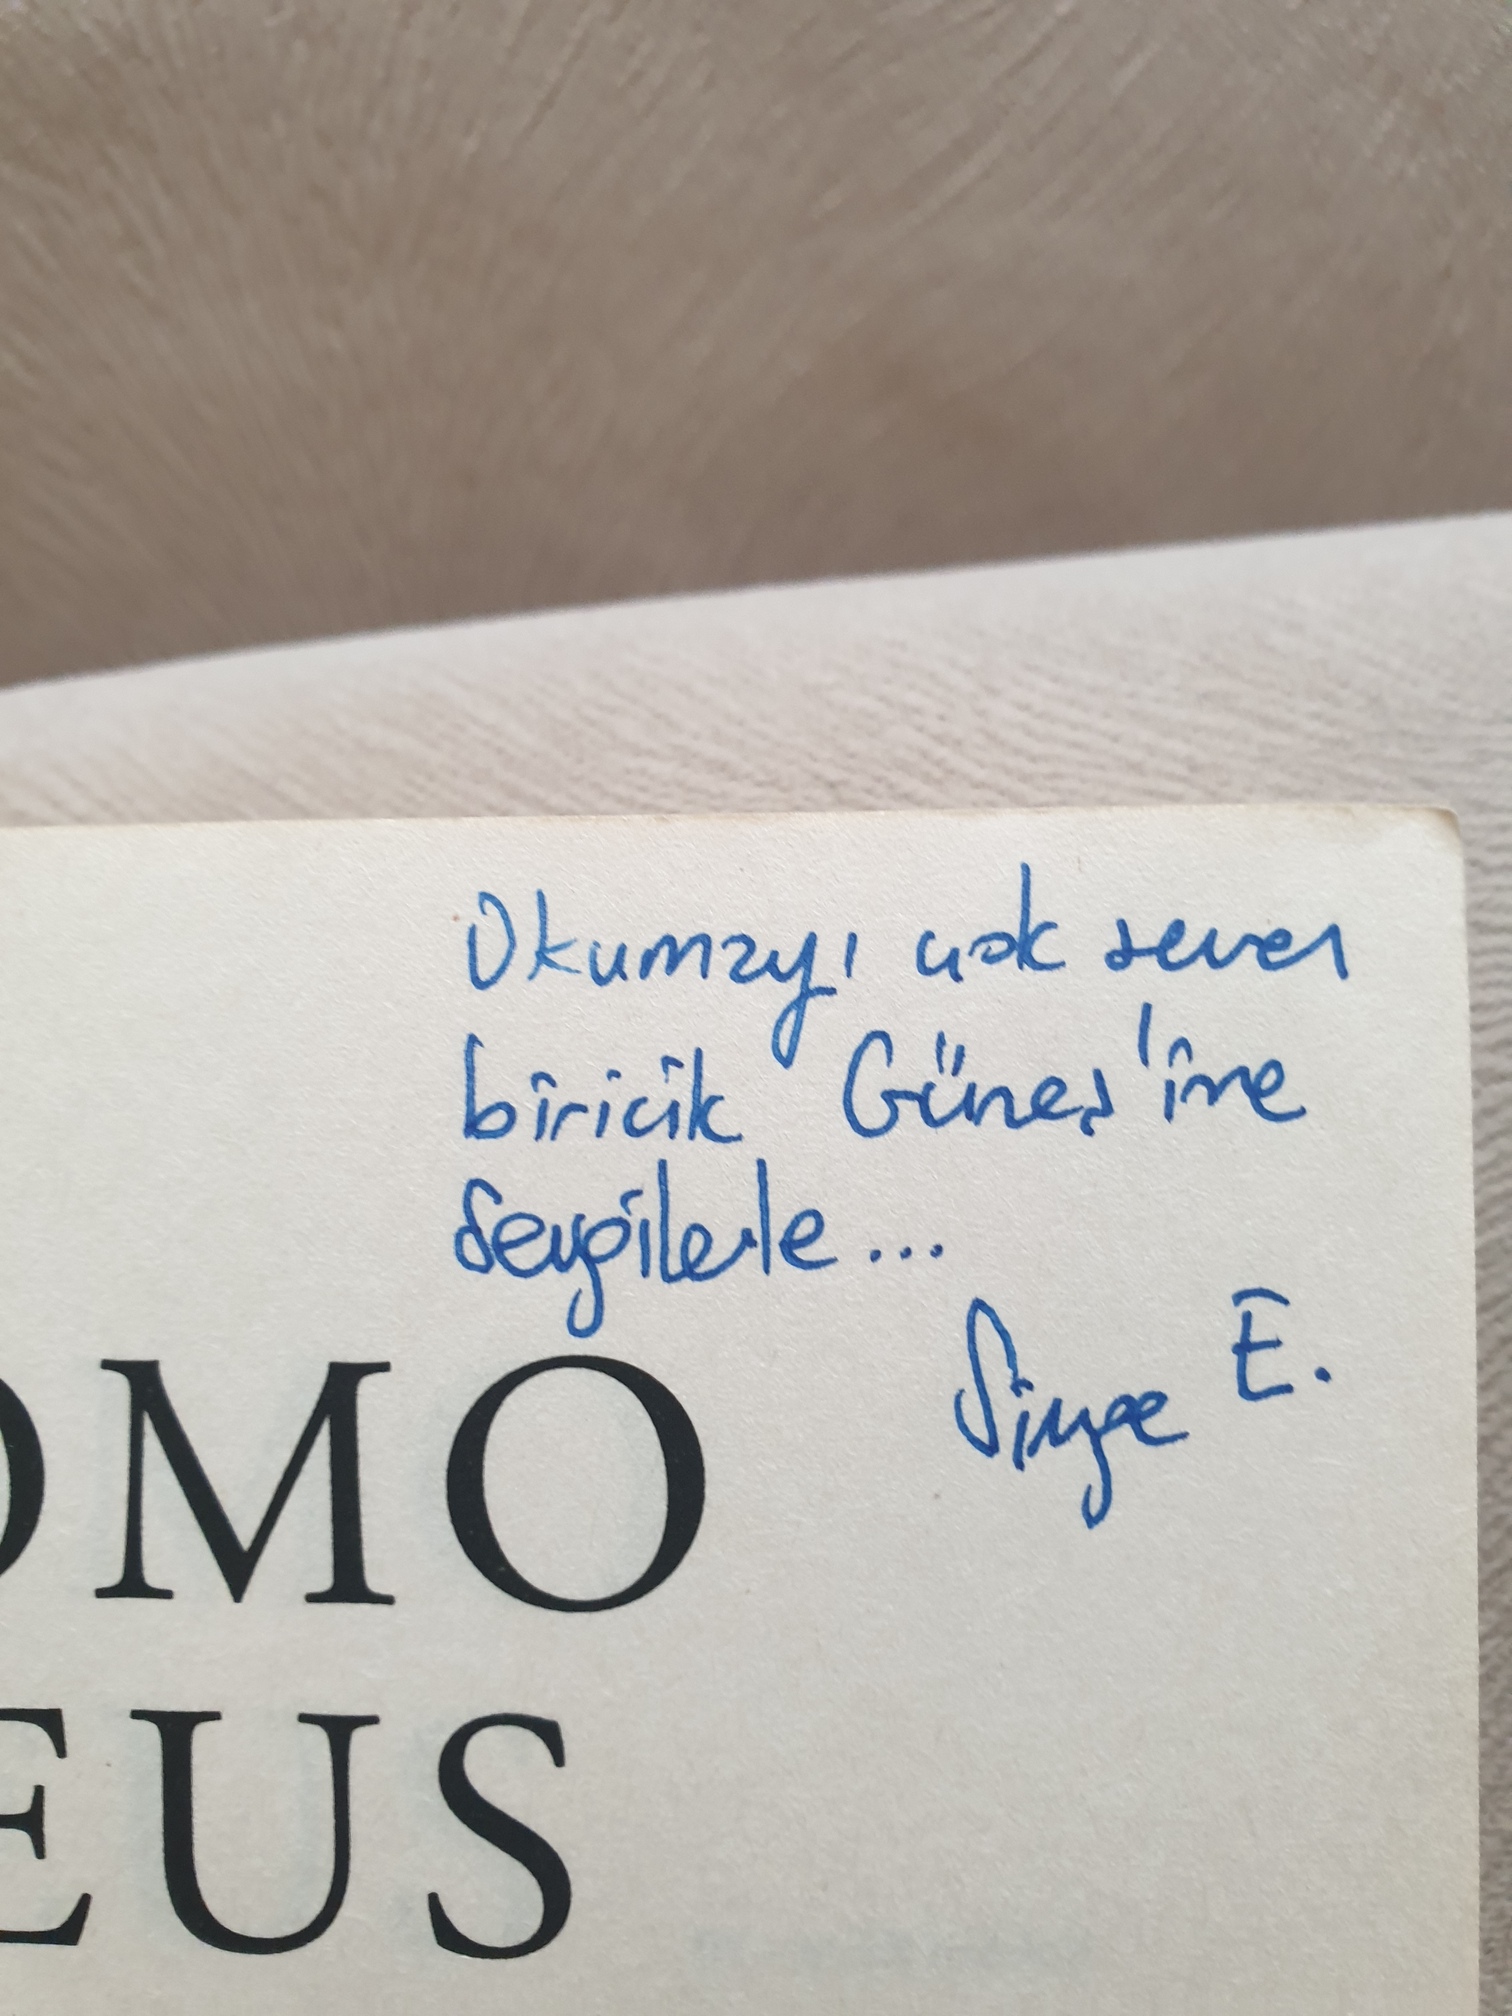 Okumayı çok seven
biricik Güneş'ime
Sevgilerle...
Simge E.
OMO
EUS